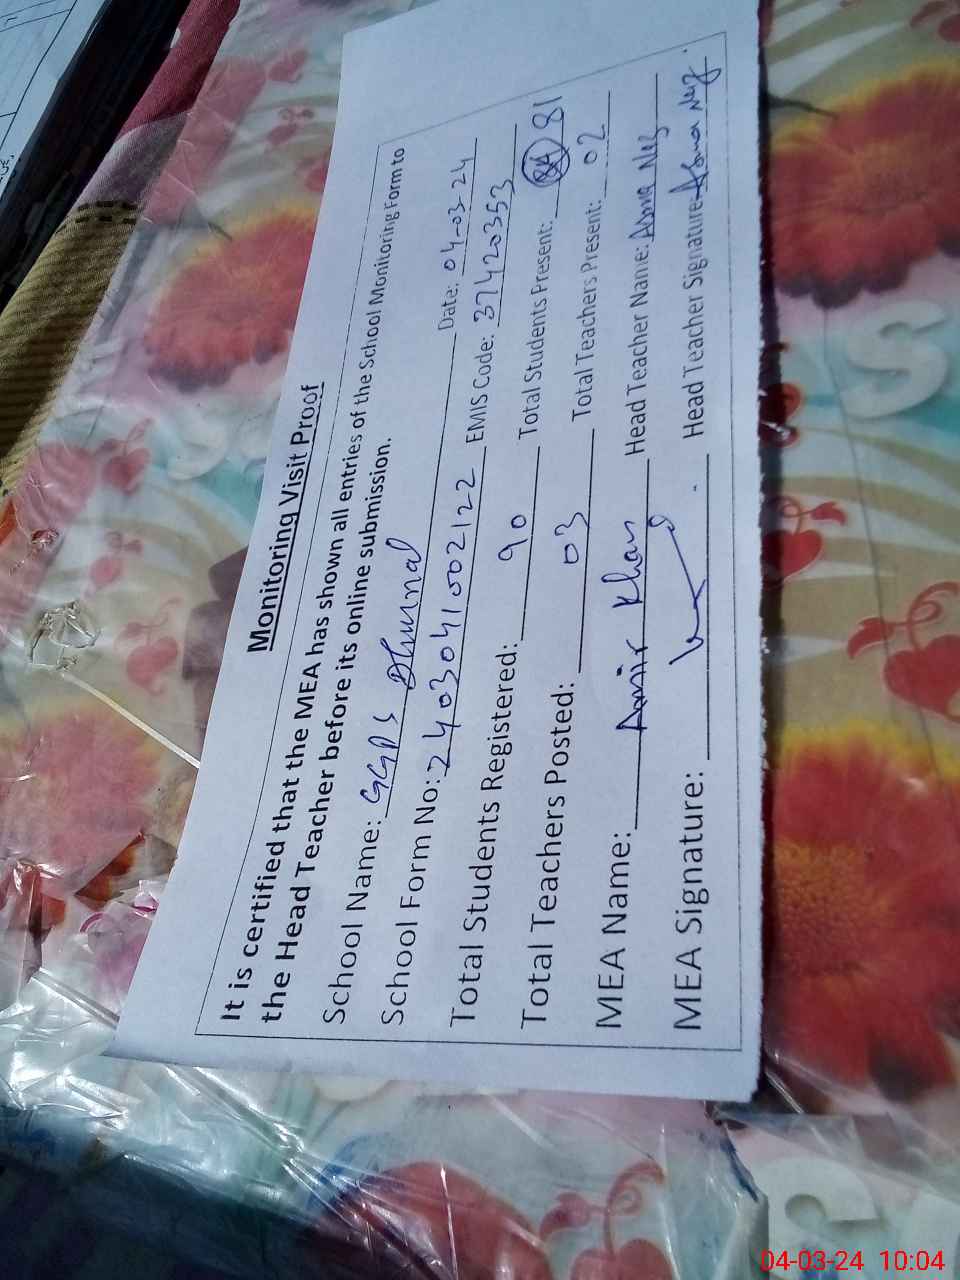 Monitoring Visit Proof
It is certified that the MEA has shown all entries of the School Monitoring Form to
the Head Teacher before its online submission.
School Name: GGPS Dhurnal Date: 04-03-24
School Form No: 2403041002122 EMIS Code: 37420353
Total Students Registered: 90 Total Students Present: 81
Total Teachers Posted: 03 Total Teachers Present: 02
MEA Name: Amir Khan Head Teacher Name: Asma Naz
MEA Signature: Head Teacher Signature: Asma Naz
04-03-24 10:04